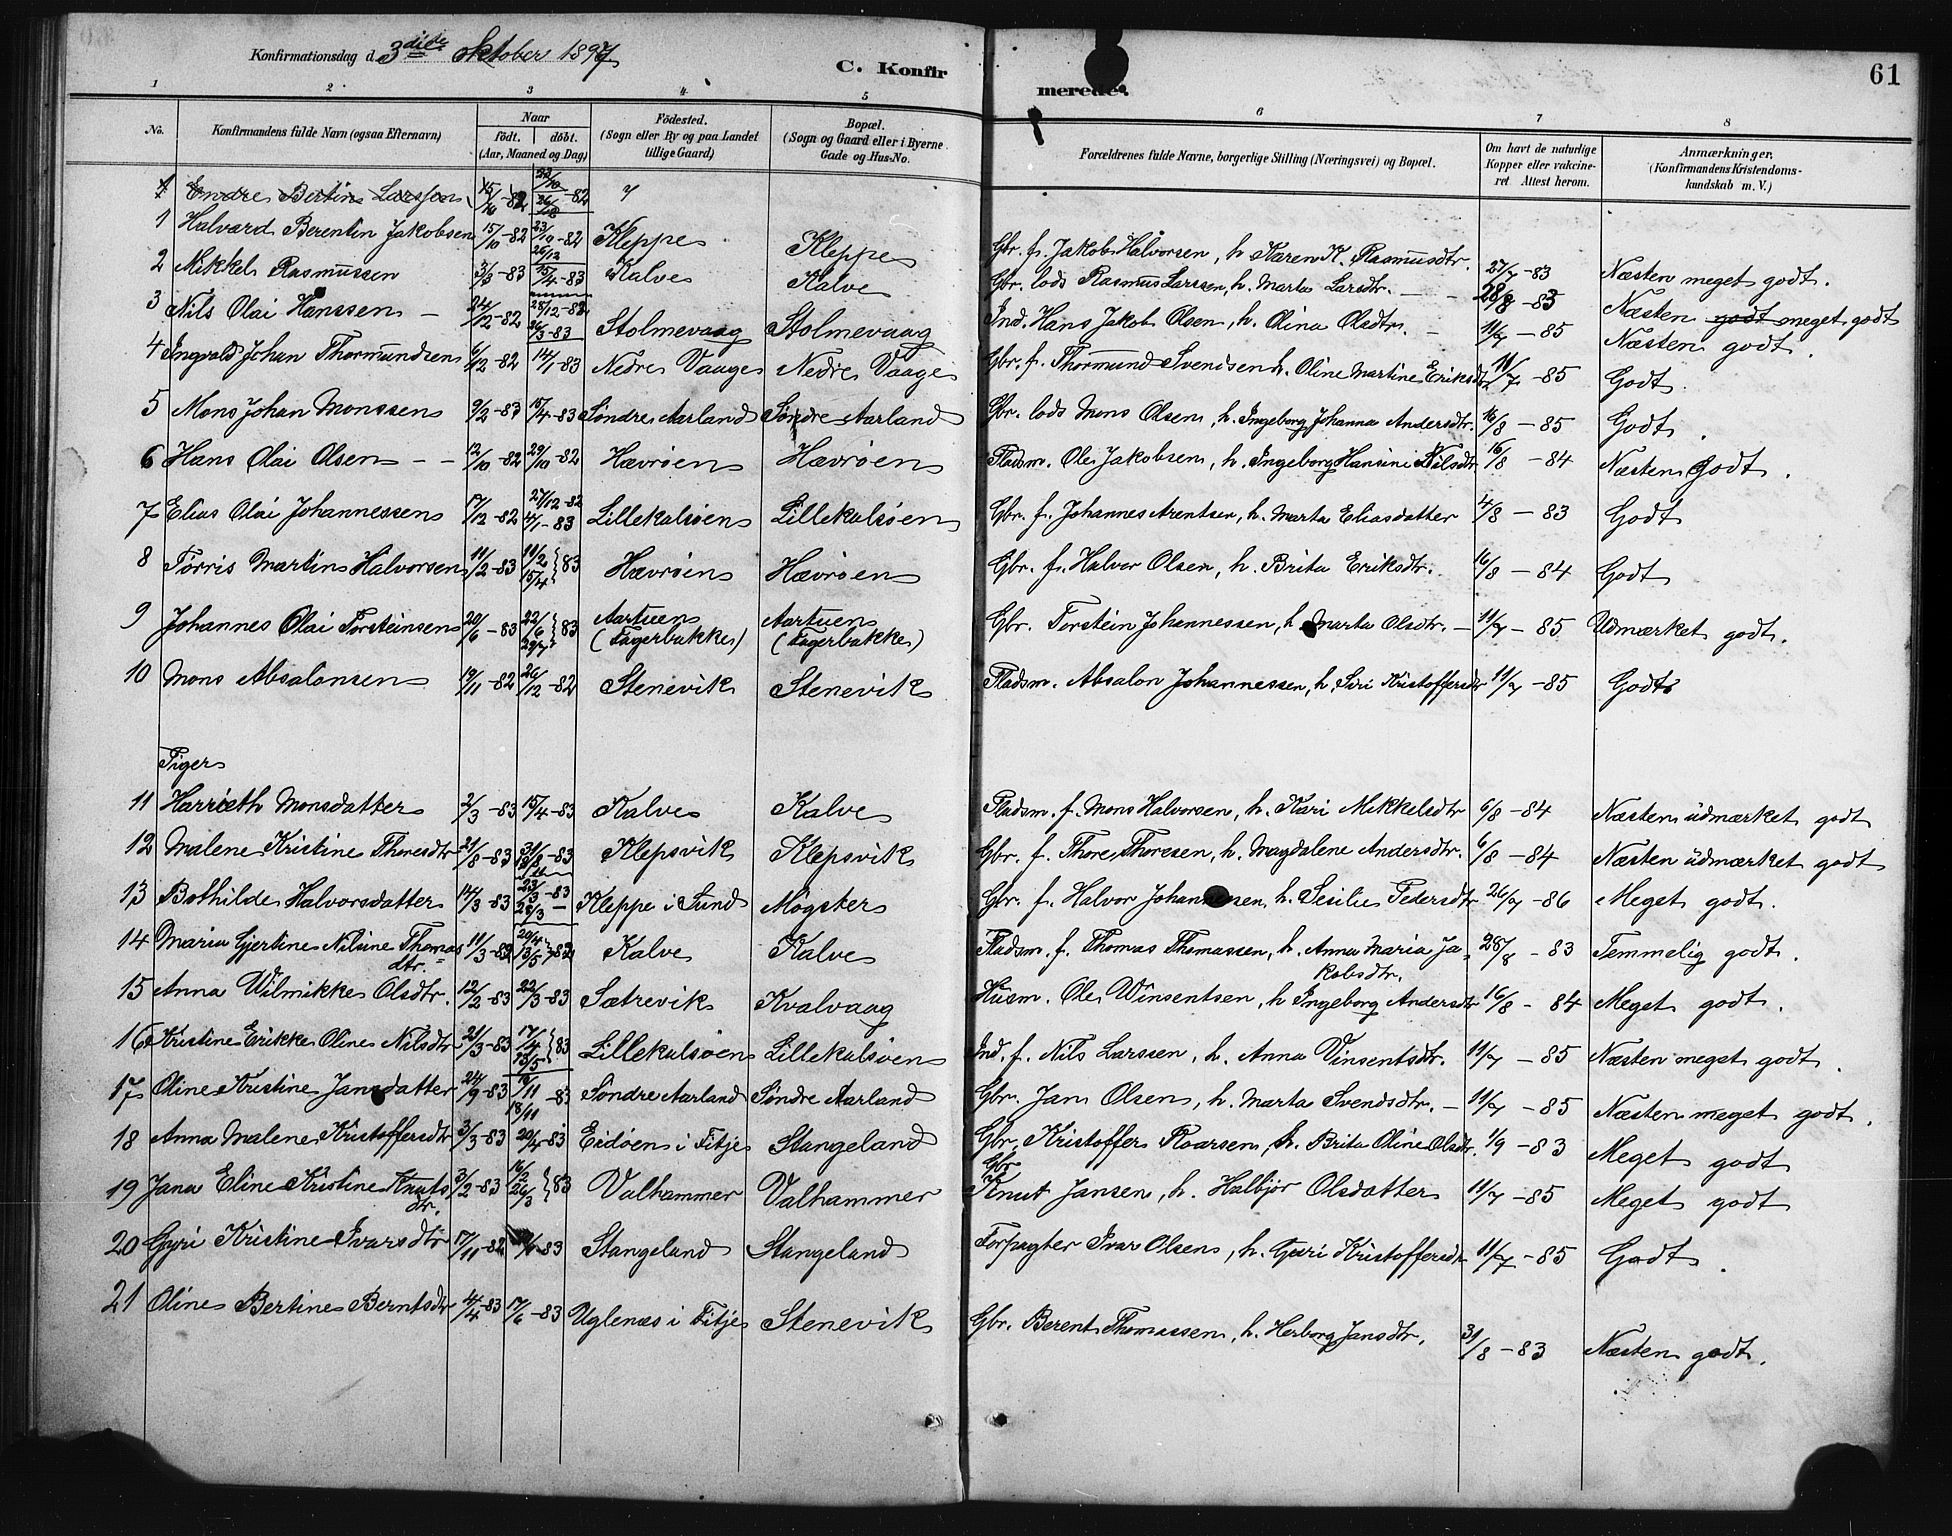 Konfirmationsdag d. 3die Oktober 1897
C. Konfirmerede.
61
1 2 3 4 5 6 7 8
No.
Konfirmandens fulde Navn (ogsaa Efternavn)
Naar
födt. döbt.
(Aar, Maaned og Dag)
Födested.
(Sogn eller By og paa Landet
tillige Gaard)
Bopæl.
(Sogn og Gaard eller i Byerne
Gade og Hus-No.
Forældrenes fulde Navne, borgerlige Stilling (Næringsvei) og Bopæl.
Om havt de naturlige
Kopper eller vakcine-
ret Attest herom.
Anmærkninger.
(Konfirmandens Kristendoms-
kundskab m. V.)
1 Endre Bertin Larssen 15/10-82
1 Halvard Berentin Jakobsen 15/10-82 23/10-82 26/12 Kleppe Kleppe Gbr. f. Jakob Halvorsen, h. Karen K. Rasmusdtr. 27/7-83 Næsten meget godt.
2 Mikkel Rasmussen 3/3-83 15/4-83 Kalve Kalve Gbr. lods Rasmus Larssen, h. Marta Larsdtr. 28/8-83 Næsten godt meget godt
3 Nils Olai Hanssen 24/12-82 25/12-82 26/3-83 Stolmevaag Stolmevaag Ind. Hans Jakob Olsen, h. Olina Olsdtr. 11/7-85 Næsten godt.
4 Ingvald Johan Thormundsen 6/12-82 14/1-83 Nedre Vaage Nedre Vaage Gbr. f. Thormund Svendsen h. Oline Martine Eriksdtr. 11/7-85 Godt.
5 Mons Johan Monssen 9/2-83 15/4-83 Söndre Aarland Söndre Aarland Gbr. lods Mons Olsen, h. Ingeborg Johanna Andersdtr. 16/8-85 Godt.
6 Hans Olai Olsen 12/10-82 29/10-82 Hævröen Hævröen Pladsm. Ole Jakobsen, h. Ingeborg Hansine Nilsdtr 16/8-84 Næsten Godt.
7 Elias Olai Johannessen 17/12-82 27/12-82 Lillekalsöen Lillekalsöen Gbr. f. Johannes Arentsen, h. Marta Eliasdatter 4/8-83 Godt
8 Törris Martin Halvorsen 11/2-83 11/2 15/4 83 Hævröen Hævröen Gbr. f. Halvor Olsen, h. Brita Eriksdtr. 16/8-84 Godt
9 Johannes Olai Torsteinsen 20/6-83 22/6 29/7 83 Aartuen (Fagerbakke) Aartuen (Fagerbakke) Gbr. Torstein Johannessen, h. Marta Olsdtr. 11/7-85 Udmærket godt.
10 Mons Absalonsen 19/11-82 26/12-82 Stenevik Stenevik Pladsm. Absalon Johannessen, h. Siri Kristoffersdtr 11/7-85 Godt
Piger
11 Harrieth Monsdatter 2/3-83 15/4-83 Kalve Kalve Pladsm. f. Mons Halvorsen, h. Kari Mikkelsdtr 6/8-84 Næsten udmærket godt
12 Malene Kristine Thoresdtr 21/8-83 31/8-83 Klepsvik Klepsvik Gbr. f. Thore Thoresen, h. Magdalene Andersdtr. 6/8-84 Næsten udmærket godt
13 Bothilde Halvorsdatter 14/3-83 23/3-83 28/3 Kleppe i Sund Mögster Gbr. f. Halvor Johannesen, h. Sesilie Pedersdtr 26/7-86 Meget godt.
14 Maria Gjertine Nilsine Thomasdtr. 11/3-82 20/4 13/5 82 Kalve Kalve Pladsm. f. Thomas Thomassen, h. Anna Maria Jakobsdtr. 28/8-83 Temmelig godt.
15 Anna Wilmikke Olsdtr. 12/2-83 22/3-83 Sætrevik Kvalvaag Husm. Ole Winsentsen, h Ingeborg Andersdtr 16/8-84 Meget godt.
16 Kristine Erikke Oline Nilsdtr 21/3-83 17/4 13/5 83 Lillekalsöen Lillekalsöen Ind. f. Nils Larssen, h. Anna Vinsentsdtr. 11/7-85 Næsten meget godt.
17 Oline Kristine Jansdatter 24/9-83 18/11-83 Söndre Aarland Söndre Aarland Gbr. Jan Olsen, h. Marta Svendsdtr. 11/7-85 Næsten meget godt.
18 Anna Malene Kristoffersdtr 3/3-83 20/4-83 Eidöen i Fitje Stangeland Gbr. Kristoffer Roarsen, h. Brita Oline Olsdtr. 1/9-83 Meget godt
19 Jana Eline Kristine Knutsdtr. 3/2-83 16/2 26/3 83 Valhammer Valhammer Gbr. Knut Jansen, h. Halbjör Olsdatter 11/7-85 Meget godt
20 Gyri Kristine Ivarsdtr 17/11-82 -83 Stangeland Stangeland Forpagter Ivar Olsen, h. Guri Kristoffersdtr 11/7-85 Godt.
21 Oline Bertine Berntsdtr 4/4-83 17/6-83 Uglenæs i Fitje Stenevik Gbr. Berent Thomassen, h. Herborg Jansdtr. 31/8-83 Næsten godt.